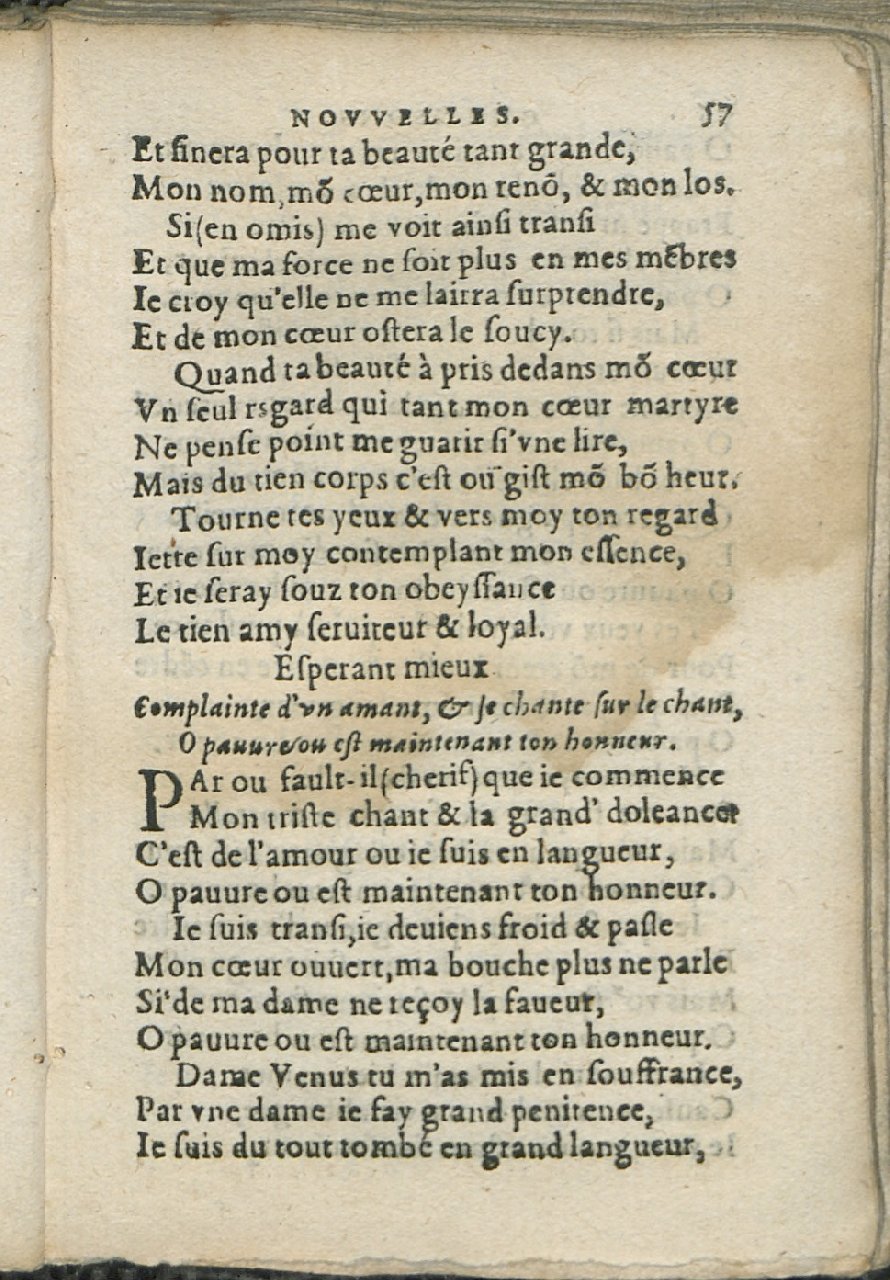 NOVVELLES. 57
Et finera pour ta beauté tant grande,
Mon nom, mõ cœur, mon renõ, & mon los.
Si (en omis) me voit ainſi tranſi
Et que ma force ne ſoit plus en mes mẽbres
Ie croy qu'elle ne me lairra ſurprendre,
Et de mon cœur oſtera le ſoucy.
Quand ta beauté à pris dedans mõ cœur
Vn ſeul rsgard qui tant mon cœur martyre
Ne penſe point me guarir ſi'vne lire,
Mais du tien corps c'eſt ou giſt mõ bõ heur.
Tourne tes yeux & vers moy ton regard
Iette ſur moy contemplant mon eſſence,
Et ie ſeray ſouz ton obeyſſance
Le tien amy ſeruiteur & loyal.
Eſperant mieux
Complainte d'vn amant, & ſe chante ſur le chant,
O pauure ou eſt maintenant ton honneur.
PAr ou fault-il (cherif) que ie commence
Mon triſte chant & la grand' doleance
C'eſt de l'amour ou ie ſuis en langueur,
O pauure ou eſt maintenant ton honneur.
Ie ſuis tranſi, ie deuiens froid & paſle
Mon cœur ouuert, ma bouche plus ne parle
Si de ma dame ne reçoy la faueur,
O pauure ou eſt maintenant ton honneur.
Dame Venus tu m'as mis en ſouffrance,
Par vne dame ie fay grand penitence,
Ie ſuis du tout tombé en grand langueur,